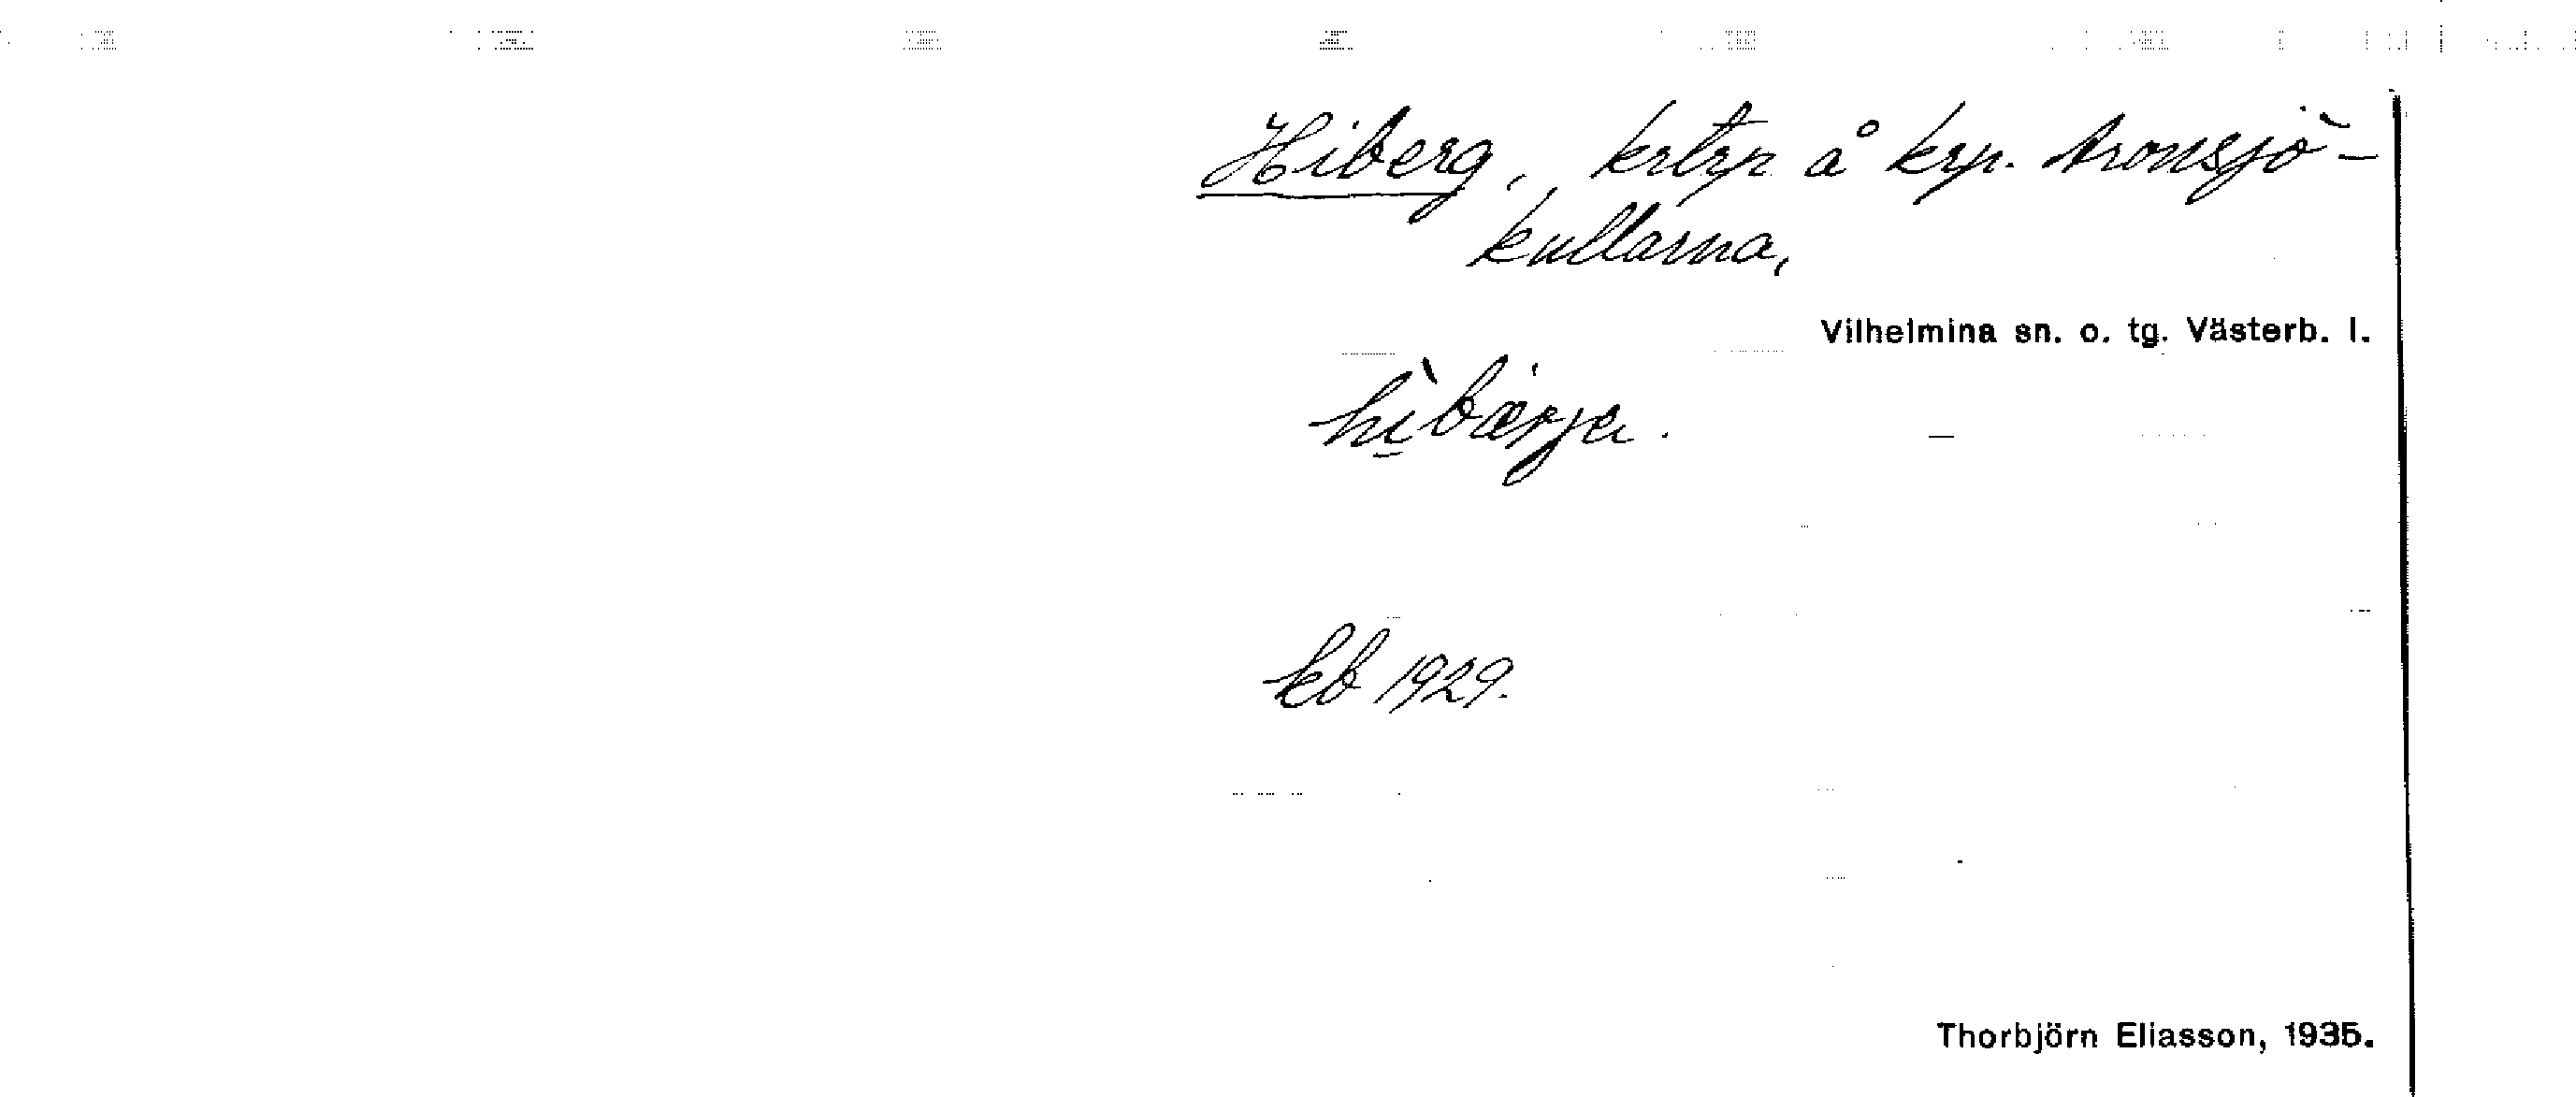 Hiberg, krtrp å krp. Aronsjö-
kullarna,
Vilhelmina sn. o. tg. Västerb. l.
hì̱bærje.
kb 1929.
Thorbjörn Eliasson, 1935.